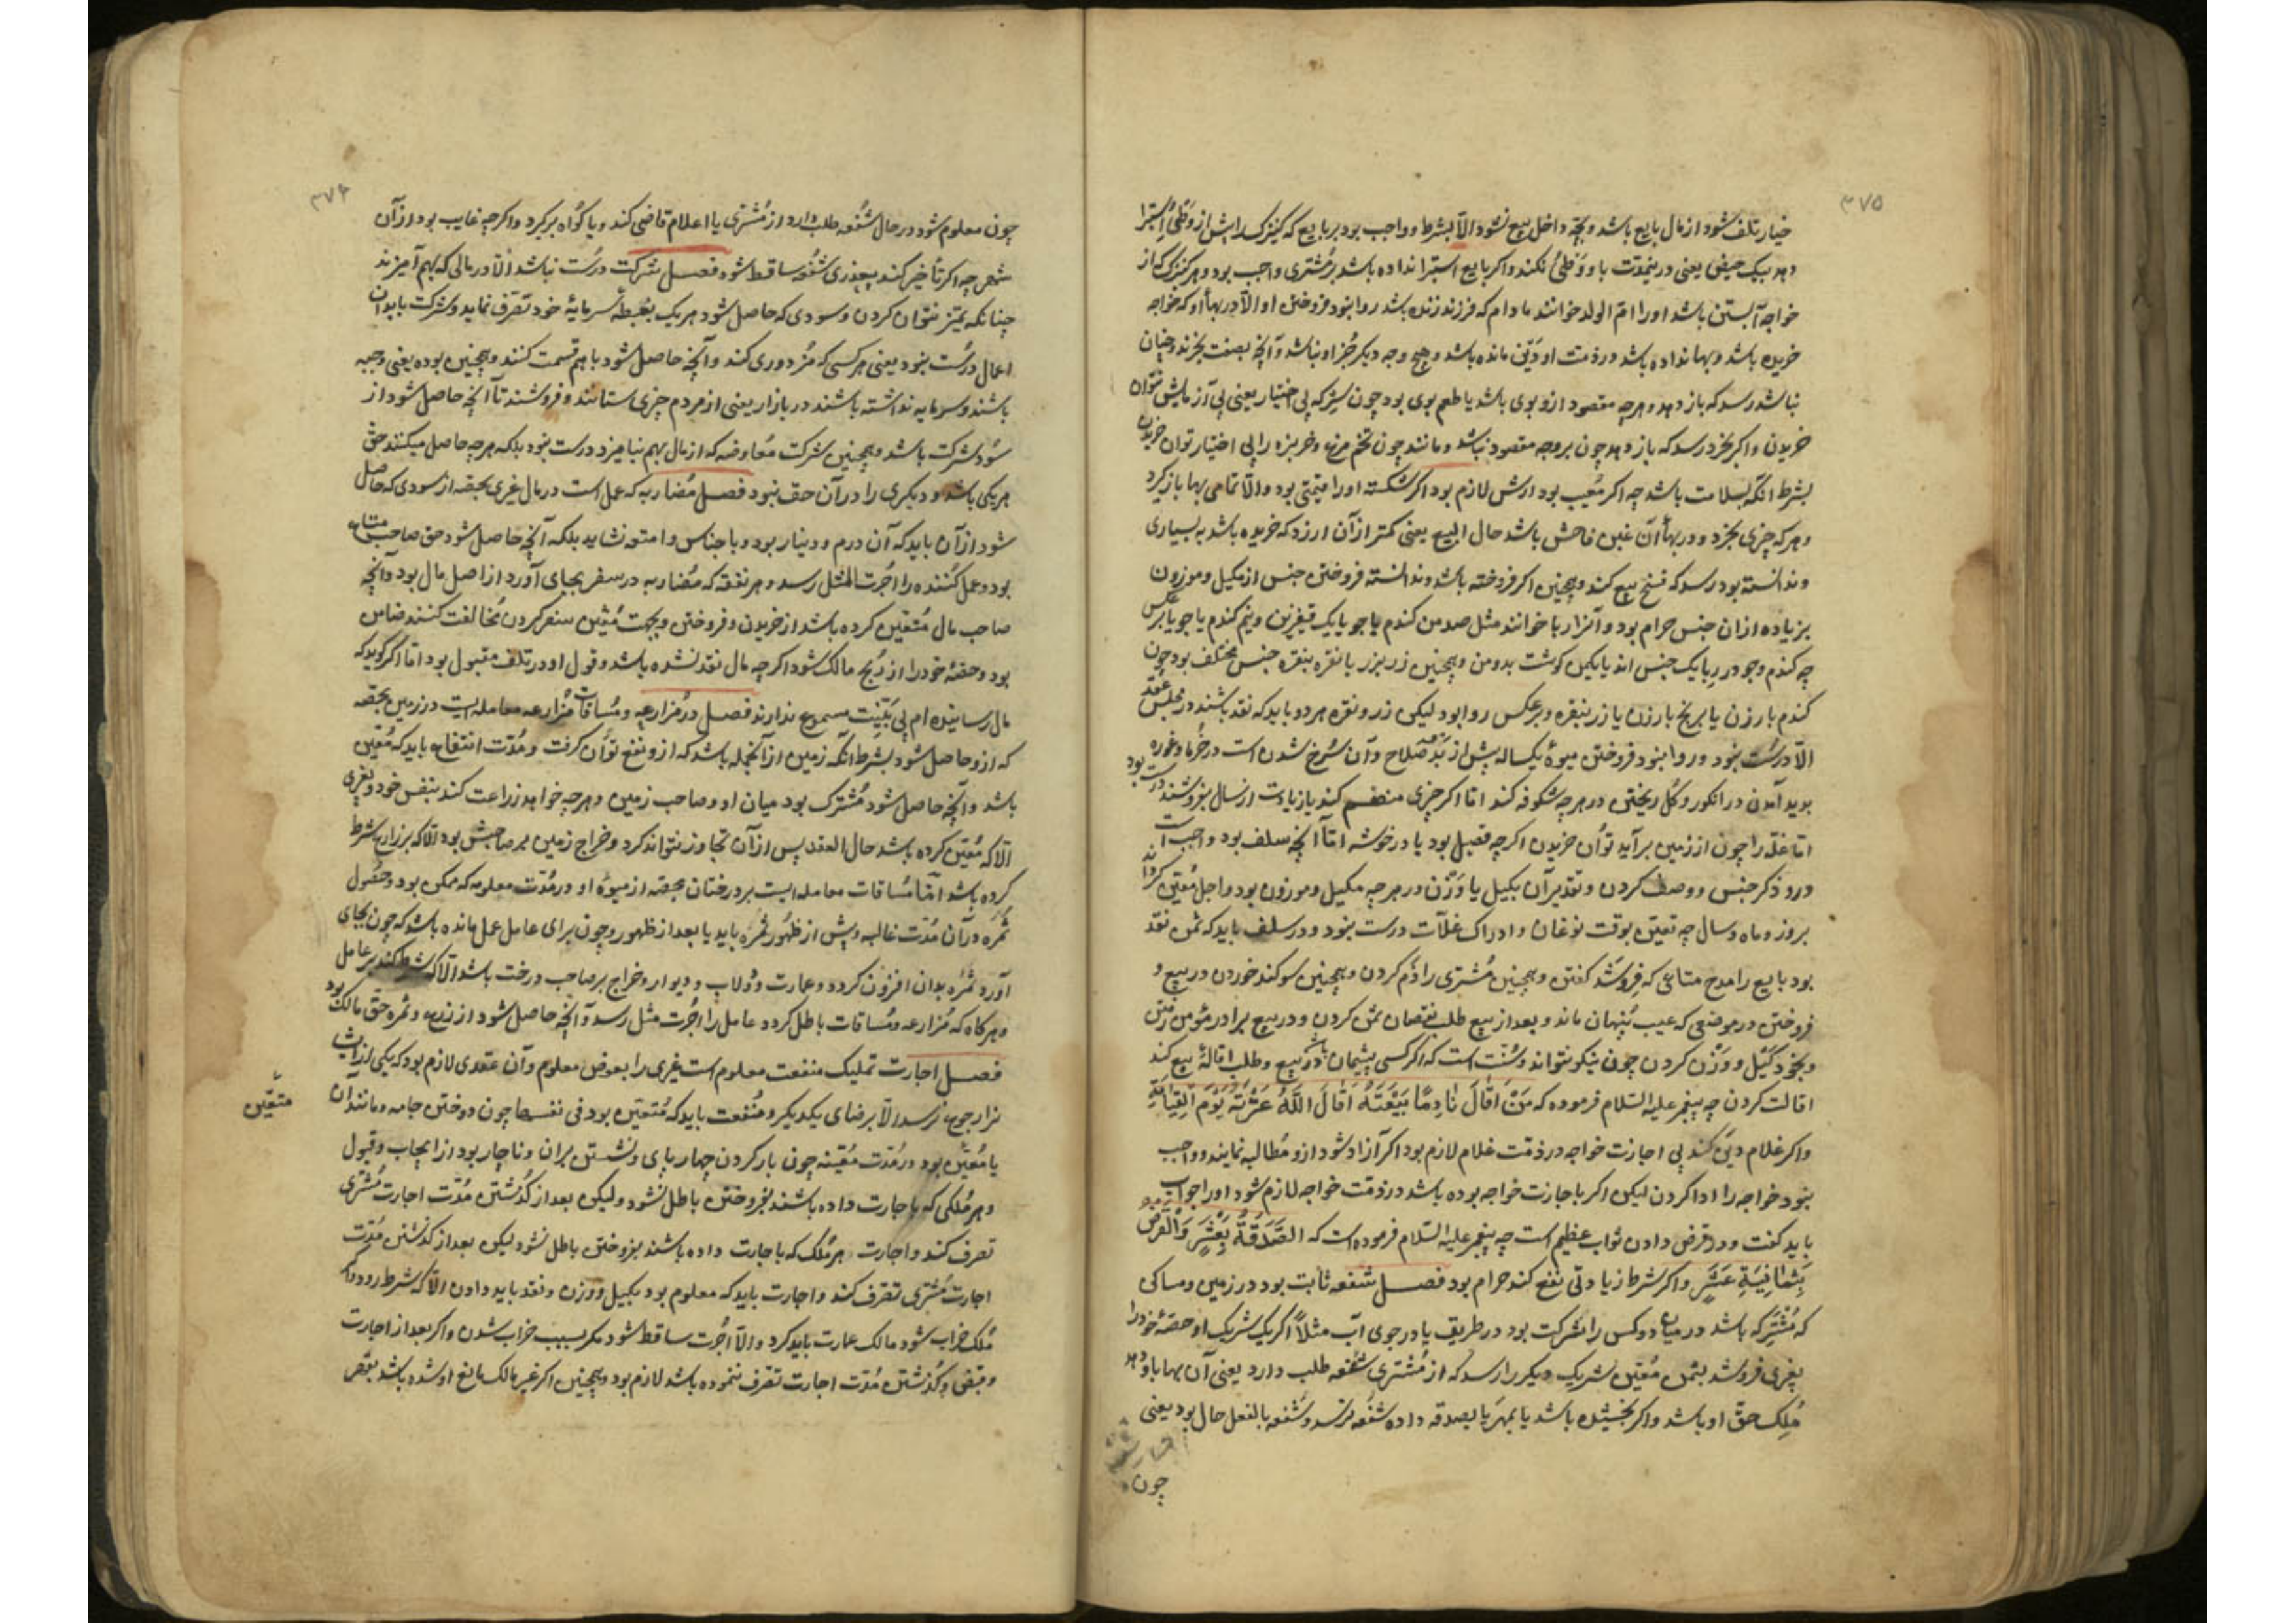 ۳۷۵
خیار تلف شود از مال بایع باشد و بچّه داخل بیع نشود الّا بشرط و واجب بود بر بایع که کنیزک را پیش از وَطْئ اِستبرا
دهد بیک حیض یعنی درینمدّت با او وَطْئ نکند و اکر بایع استبرا نداده باشد بر مُشتری واجب بود و هر کنیزک که از
خواجه آبستن باشد او را امّ الولد خوانند مادام که فرزند زنده باشد روا نبود فروختن او الّا در بهاءِ او که خواجه
خریده باشد و بها نداده باشد و در ذمّت او دَیْن مانده باشد و هیچ وجه دیکر جُز او نباشد و آنچه بصفت بخرند و چنان
نباشد رسد که باز دهد و هر چه مقصود ازو بوی باشد یا طعم بوی بود چون سِرکه بی اختیار یعنی بی آزمایش نتوان
خریدن و اکر بخرد رسد که باز دهد چون بر وجه مقصود نباشد و مانند چون تخم مرغ و خربزه را بی اختیار توان خریدن
بشرط آنکه بسلامت باشد چه اکر مَعیب بود ارش لازم بود اکر شکسته او را قیمتی بود والّا تمامی بها باز کیرد
و هر که چیزی بخرد و در بهاءِ آن غبن فاحش باشد حال البیع یعنی کمتر از آن ارزد که خریده باشد به بسیاری
و ندانسته بود رسد که فسخ بیع کند و همچنین اکر فروخته باشد و ندانسته فروختن جنس از مکیل و موزون
بزیاده از ان جنس حرام بود و آنرا ربا خوانند مثل صد من کندم یا جو با یک قفیز و نیم کندم یا جو یا برعکس
چه کندم و جو در ربا یک جنس اند یا یکمن کوشت بدو من و همچنین زر بزر یا نقره بنقره جنس مختلف بود چون
کندم بارزن یا برنج بارزن یا زر بنقره و برعکس روا بود لیکن زر و نقره هر دو باید که نقد باشند در مجلس عَقد
الّا درست نبود و روا نبود فروختن میوهٔ یکساله پیش از بُدُوِّ صَلاح و آن سُرخ شدن است در خُرما و غوره
بدید آمدن در انکور و کُل ریختن در هر چه شکوفه کند امّا اکر چیزی منضم کند یا زیادت از سال بفروشند درست بود
امّا غلّه را چون از زمین برآید توان خریدن اکر چه فصیل بود یا در خوشه امّا آنچه سلف بود واجب است
درو ذکر جنس و وصف کردن و تقدیر آن بکیل یا وَزْن در هر چه مکیل و موزون بود و اجل مُعیّن کردانند
بروز و ماه و سال چه تعیّن بوقت نوغان و ادراک غلّات درست نبود و در سلف باید که ثمن نقد
بود بایع را مدح متاعی که فروشد کفتن و همچنین مُشتری را ذم کردن و همچنین سوکند خوردن در بیع و
فروختن در موضعی که عیب پنهان ماند و بعد از بیع طلب نقصان ثمن کردن و در بیع برادر مؤمن رفتن
و بخود کَیْل و وَزْن کردن چون نیکو نتواند و سُنّت است که اکر کسی پشیمان باشد در بیع و طلب اقالهٔ بیع کند
اقالت کردن چه پیغمبر علیه السّلام فرموده که مَنْ اَقالَ نادِمًا بَیْعَتَهُ اَقالَ اللّهُ عَثْرَتَهُ یَوْمَ الْقِیامَةِ
واکر غلام دین کند بی اجازت خواجه در ذمّت غلام لازم بود اکر آزاد شود ازو مُطالبه نمایند و واجب
نبود خواجه را ادا کردن لیکن اکر باجازت خواجه بوده باشد در ذمّت خواجه لازم شود او را جواب
باید کفت و در قرض دادن ثواب عظیم است چه پیغمبر علیه السّلام فرموده است که الصَّدَقَةُ بِعَشْرٍ وَالْقَرْضُ
بِثَمانِیَةِ عَشَر و اکر شرط زیادتی نفع کند حرام بود فصل شفعه ثابت بود در زمین و مساکن
که مُشْتَرَک باشد در میان دو کس را شرکت بود در طریق یا در جوی آب مثلاً اکر یک شریک او حصّهٔ خود را
بغیری فروشد بثمن مُعیّن شریک دیکر را رسد که از مُشتری شُفعه طلب دارد یعنی آن بها باو دهد
مِلک حقّ او باشد و اکر بخشیده باشد یا بمهر یا بصدقه داده شُفعه نرسد و شُفعه بالفعل حال بود یعنی
چون
۳۷۶
چون معلوم شود در حال شُفعه طلب دارد از مُشتری یا اعلام قاضی کند و یا کُواه برکیرد و اکر چه غایب بود از آن
شهر چه اکر تأخیر کند بیعذری شُفعه ساقط شود فصل شرکت درست نباشد الّا در مالی که بهم آمیزند
چنانکه تمیز نتوان کردن و سودی که حاصل شود هر یک بقسط سرمایهٔ خود تصرّف نماید و شرکت بابدان
اعمال درست نبود یعنی هر کسی که مُزدوری کند و آنچه حاصل شود با هم قسمت کنند و همچنین بوده یعنی وجیه
باشند و سرمایه نداشته باشند در بازار یعنی از مردم چیزی استانند و فروشند تا آنچه حاصل شود از
سُود شرکت باشد و همچنین شرکت مُفاوضه که از مال بهم نیامیزد درست نبود بلکه هر چه حاصل میکنند حقّ
هر یکی باشد و دیکری را در آن حق نبود فصل مُضاربه که عمل است در مال غیری بحصّه از سودی که حاصل
شود از آن باید که آن درم و دینار بود و با جناس و امتعه نشاید بلکه آنچه حاصل شود حق صاحب متاع
بود و عمل کننده را اُجرت المثل رسد و هر نفقه که مُضاربه در سفر بجای آورد از اصل مال بود و آنچه
صاحب مال مُتعیّن کرده باشد از خریدن و فروختن و بجهت مُعیّن سفر کردن مُخالفت کنند ضامن
بود و حصّهٔ خود را از رِبح مالک شود اکر چه مال نقد نشده باشد و قول او در تلف مقبول بود امّا اکر کوید که
مال رسانیده ام بی بَیِّنت مسموع ندارند فصل در مُزارعه و مُساقات مُزارعه معامله ایست در زمین بحصّه
که ازو حاصل شود بشرط آنکه زمین از آنجمله باشد که ازو نفع توان کرفت و مُدّت انتفاع باید که مُعیّن
باشد و آنچه حاصل شود مُشترک بود میان او و صاحب زمین و هر چه خواهد زراعت کند بنفس خود و بغیری
الّا که مُعیّن کرده باشد حال العقد پس از آن تجاوز نتواند کرد و خراج زمین بر صاحبش بود الّا که بر زارع شرط
کرده باشد امّا مُساقات معامله ایست بر درختان بحصّه از میوهٔ او در مُدّت معلومه که ممکن بود و حُصول
ثَمَره در آن مُدّت غالبه و پیش از ظهُور ثَمَره باید یا بعد از ظهور و چون برای عامل عمل مانده باشد که چون بجای
آورد ثَمَره بدان افزون کردد و عمارت و دُولاب و دیوار و خراج بر صاحب درخت باشد الّا که شرط کند بر عامل
و هر کاه که مُزارعه و مُساقات باطل کردد عامل را اُجرت مثل رسد و آنچه حاصل شود از زرع و ثمره حقّ مالک بود
فصل اجارت تملیک منفعت معلوم است غیری را بعوض معلوم و آن عقدی لازم بود که یکی را ازیشان
نزار جوع نرسد الّا برضای یکدیکر و منفعت باید که مُتعیّن بود فی نفسها چون دوختن جامه و مانند آن
متعیّن
یا مُعیّن بود در مُدّت مُعیّنه چون بار کردن چهار پای و نشستن بران و ناچار بود از ایجاب و قبول
و هر مُلکی که باجارت داده باشند بفروختن باطل نشود ولیکن بعد از کذشتن مُدّت اجارت مُشتری
تصرف کند و اجارت هر مُلک که باجارت داده باشند بفروختن باطل نشود لیکن بعد از کذشتن مُدّت
اجارت مُشتری تصرّف کند و اجارت باید که معلوم بود بکیل و وزن و نقد باید دادن الّا که شرط رود و اکر
مُلک خراب شود مالک عمارت باید کرد والّا اُجرت ساقط شود مکر بسبب خراب شدن و اکر بعد از اجارت
و قبض و کُذشتن مُدّت اجارت تصرّف ننموده باشد لازم بود و همچنین اکر غیر مالک مانع او شده باشد بعض